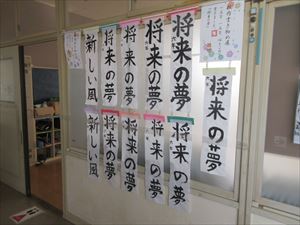 新しい風
将来の夢
将来の夢
将来の夢
将来の夢
将来の夢
新しい風
将来の夢
将来の夢
将来の夢
将来の夢